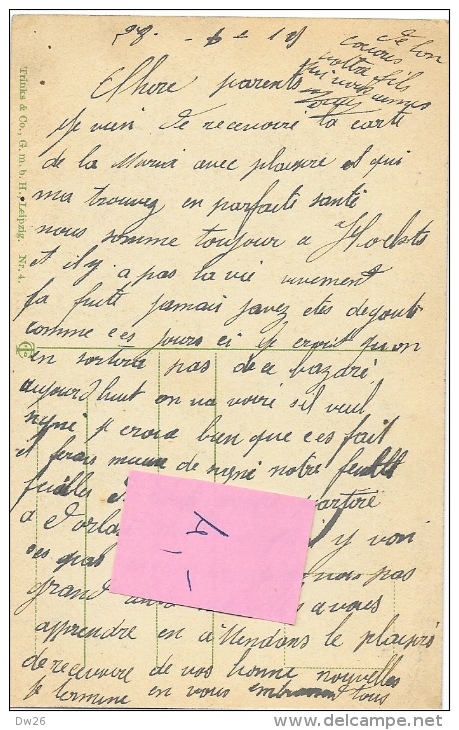 28 - 6 - 19
de bon
coeur
votre fils
qui vous aimes
Chere parents
Je vien de recevoire la carte
de la Maria avec plaisire et qui
ma trouvez en parfaite santé
nous somme toujour a Hochts
et il y a pas la vie vivement
la fuite jamais javez etes degouté
comme ces jours ci je croit qu on
en sortira pas de ce bazare
aujourd huit on va voire s il veul
signé je crois bien que ces fait
il ferais mieux de signé notre feuille
feuilles partire
a y voir
ces pas nous pas
grand a vous
apprendre en attendans le plaisire
de recevoire de vos bonne nouvelles
Je termine en vous embrassent tous
4,-
Trinks & Co., G. m. b. H., Leipzig. Nr. 4.
Dw26
www.delcampe.net